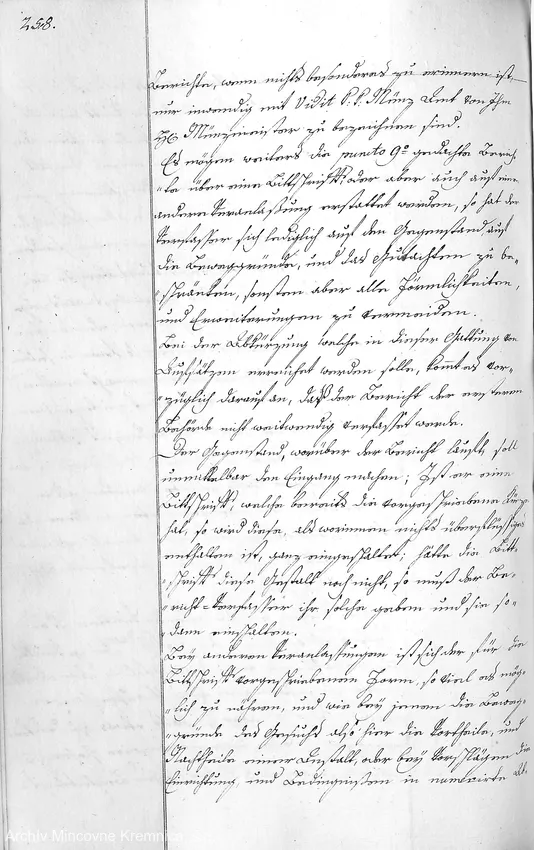 258.
Berichte, wenn nichts besonderes zu erinnern ist,
nur inwendig mit Vidit P. P. Münz Amt von Ihm
Münzmeister zu bezeichnen sind.
Es mögen weiters die puncto 9º gedachte Berich-
te über eine Bittschrift, oder aber auch aus einer
anderen Veranlassung erstattet werden, so hat der
Verfasser sich lediglich auf den Gegenstand, auf
die Beweggründe, und das Gutachten zu be-
schränken, sonsten aber alle Förmlichkeiten,
und Erweiterungen zu vermeiden.
Bei der Abkürzung welche in dieser Gattung von
Aufsätzen erreichet werden solle, kommt es vor-
züglich darauf an, daß der Bericht der ersteren
Behörde nicht weitwendig verfasset werde.
Der Gegenstand, worüber der Bericht lauft, soll
unmittelbar den Eingang machen; Ist er eine
Bittschrift, welche bereits die vorgeschriebene
hat, so wird diese, als worinnen nichts überflüssiges
enthalten ist, ganz eingeschaltet; hätte die Bitt-
schrift diese Gestalt noch nicht, so muß der Be-
richt-Verfasser ihr solche geben und sie so-
dann einschalten.
Bey anderen Veranlassungen ist sich der für die
Bittschrift vorgeschriebenen Form, so viel es mög-
lich zu nähern, und wie bey jenen die Beweg-
gründe des Gesuchs also hier die Vortheile, und
Nachtheile einer Anstalt, oder bey Vorschlägen die
Einrichtung, und Bedingnissen in numerirte Ab-
Archív Mincovne Kremnica